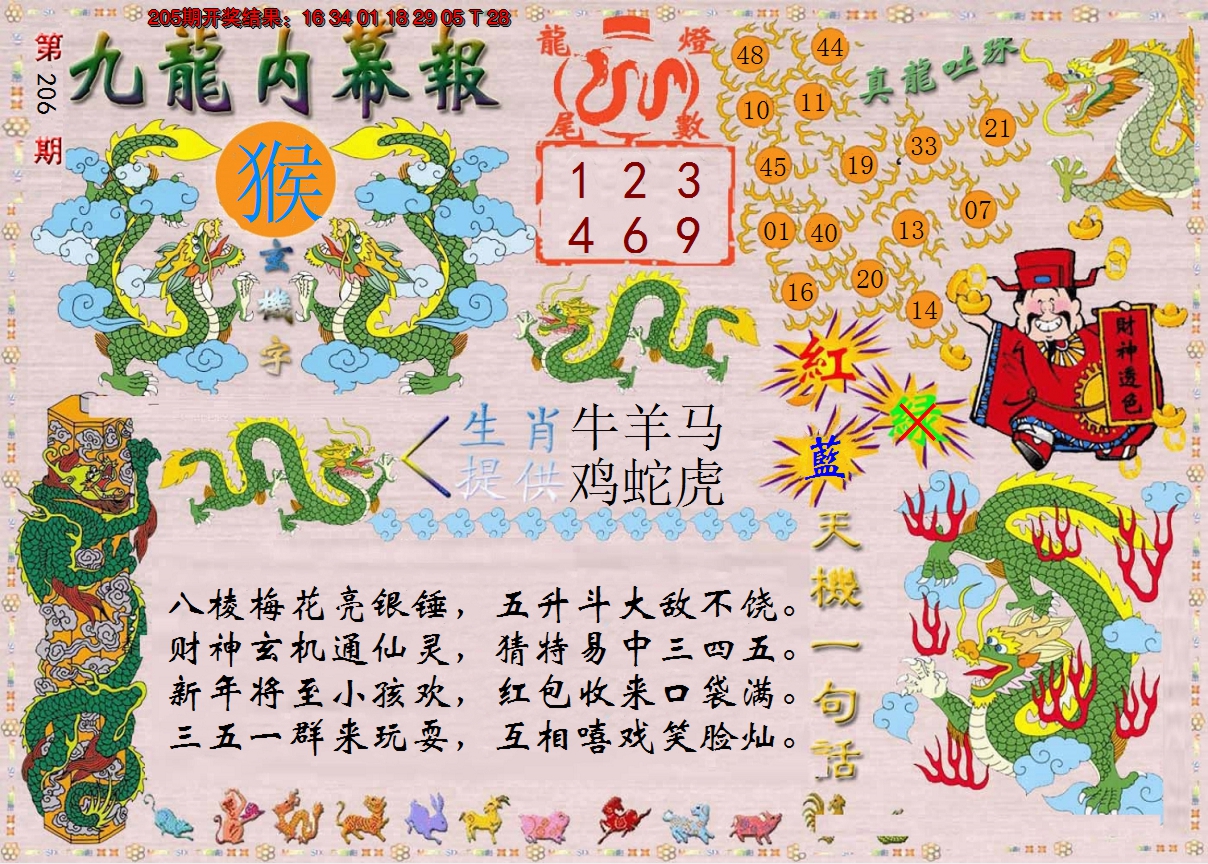 205期开奖结果：16 34 01 18 29 05 T 28
第206期
九龍内幕報
猴
玄機字
龍燈
尾數
1 2 3
4 6 9
真龍吐珠
48 44
10 11
45 19 33 21
01 40 13 07
16 20 14
財神透色
紅
绿
藍
生肖 牛羊马
提供 鸡蛇虎
八棱梅花亮银锤，五升斗大敌不饶。
财神玄机通仙灵，猜特易中三四五。
新年将至小孩欢，红包收来口袋满。
三五一群来玩耍，互相嘻戏笑脸灿。
天機一句話